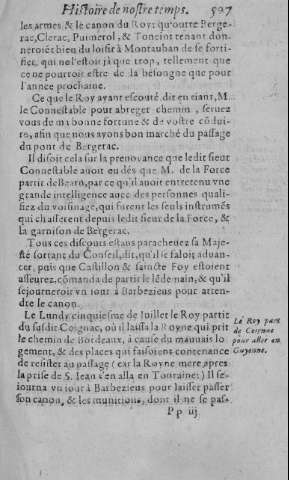 Histoire de nostre temps. 507
les armes & le canon du Roy: qu'outre Berge-
rac, Clerac, Puimerol, & Toneint tenant don-
neroiẽt biẽ du loisir à Montauban de se forti-
fier, qui ne l'estoit jà que trop, tellement que
ce ne pourroit estre de la besongne que pour
l'année prochaine.
Ce que le Roy ayant escouté dit en riant, M...
le Connestable pour abreger chemin, seruez
vous de ma bonne fortune & de vostre cõdui-
te, afin que nous ayons bon marché du passage
du pont de Bergerac.
Il disoit cela sur la preuoyance que ledit sieur
Connestable auoit eu dés que M. de la Force
partit de Bearn, par ce qu'il auoit entretenu vne
grande intelligence auec des personnes quali-
fiez du voisinage, qui furent les seuls instrumẽs
qui chasserent depuis ledit sieur de la Force, &
la garnison de Bergerac.
Tous ces discours estans paracheuez sa Maje-
sté sortant du Conseil, dit, qu'il se faloit aduan-
cer, puis que Castillon & saincte Foy estoient
asseurez, comanda de partir le lẽdemain, & qu'il
sejourneroit vn iour à Barbezieux pour atten-
dre le canon.
Le Lundy cinquiesme de Iuillet le Roy partit
du susdit Coignac, où il laissa la Royne qui prit
le chemin de Bordeaux, à cause du mauuais lo-
gement, & des places qui faisoient contenance
de resister au passage (car la Royne mere apres
la prise de S. Iean s'en alla en Touraine) Il se-
iourna vn iour à Barbezieux pour laisser passer
son canon, & les munitions, dont il ne se pas-
Le Roy part
de Coignac
pour aller en
Guyenne.
Pp iij